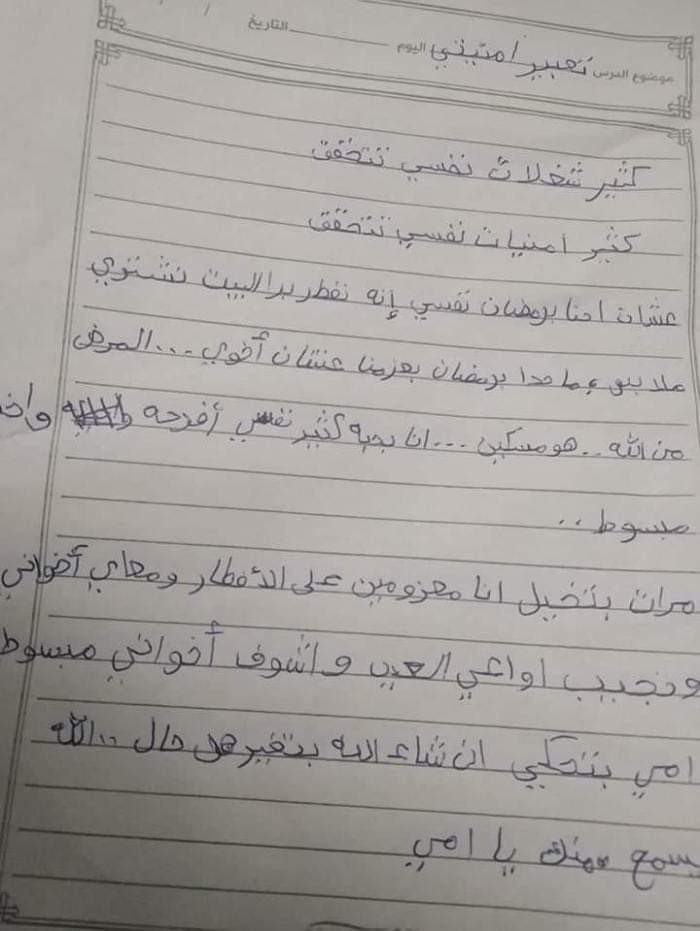 موضوع الدرس تعبير أمنيتي اليوم التاريخ
كثير شغلات نفسي تتحقق
كثير امنيات نفسي تتحقق
عشان احنا برمضان نفسي إنه نفطر برا البيت نشتري
ملابس حدا برمضان يعزمنا عشان أخوي ... المرض
من الله .. هو مسكين ... انا بحبه كثير نفسي أفرحه
مبسوط ..
مرات بتخيل انا معزومين على الأفطار ومعاي أخواني
ونجيب اواعي العيد واشوف أخواني مبسوط
امي بتحكي ان شاء الله بتغير هل حال .. الله
يسمع منك يا امي